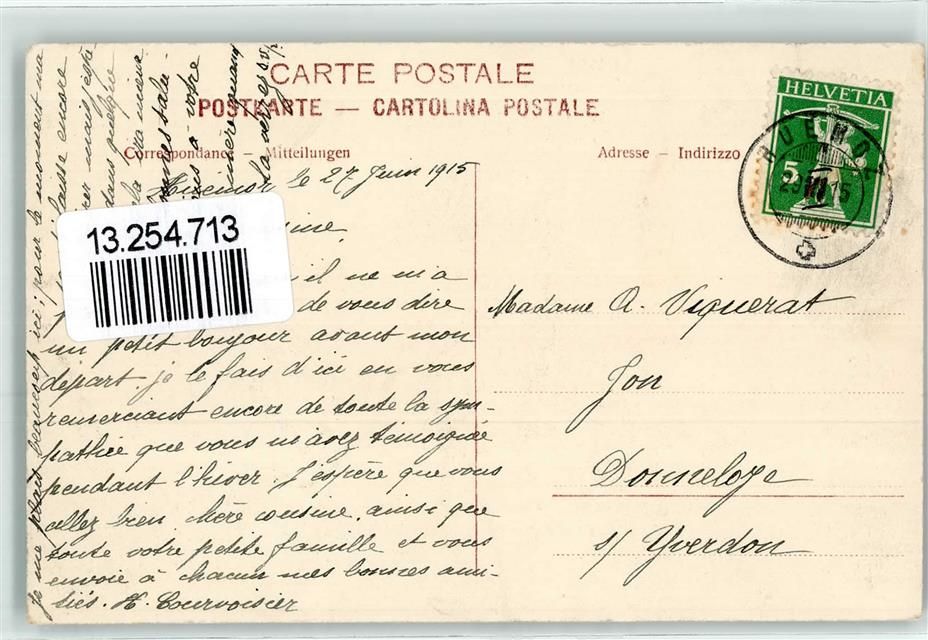 CARTE POSTALE
POSTKARTE — CARTOLINA POSTALE
Correspondance – Mitteilungen
Adresse – Indirizzo
HELVETIA
5
HUÉMOZ
29 VI 15
13.254.713
le 27 Juin 1915
il ne m'a
de vous dire
un petit bonjour avant mon
départ, je le fais d'ici en vous
remerciant encore de toute la sym-
pathie que vous m'avez témoignée
pendant l'hiver. J'espère que vous
allez bien chère cousine, ainsi que
toute votre petite famille et vous
envoie à chacun mes bonnes ami-
tiés. H. Courvoisier
Je me plais beaucoup ici; pour le moment ma
laisse encore
mais j'espè
dans
la
à votre
Madame A. Viquerat
Jon
Donneloye
s/ Yverdon